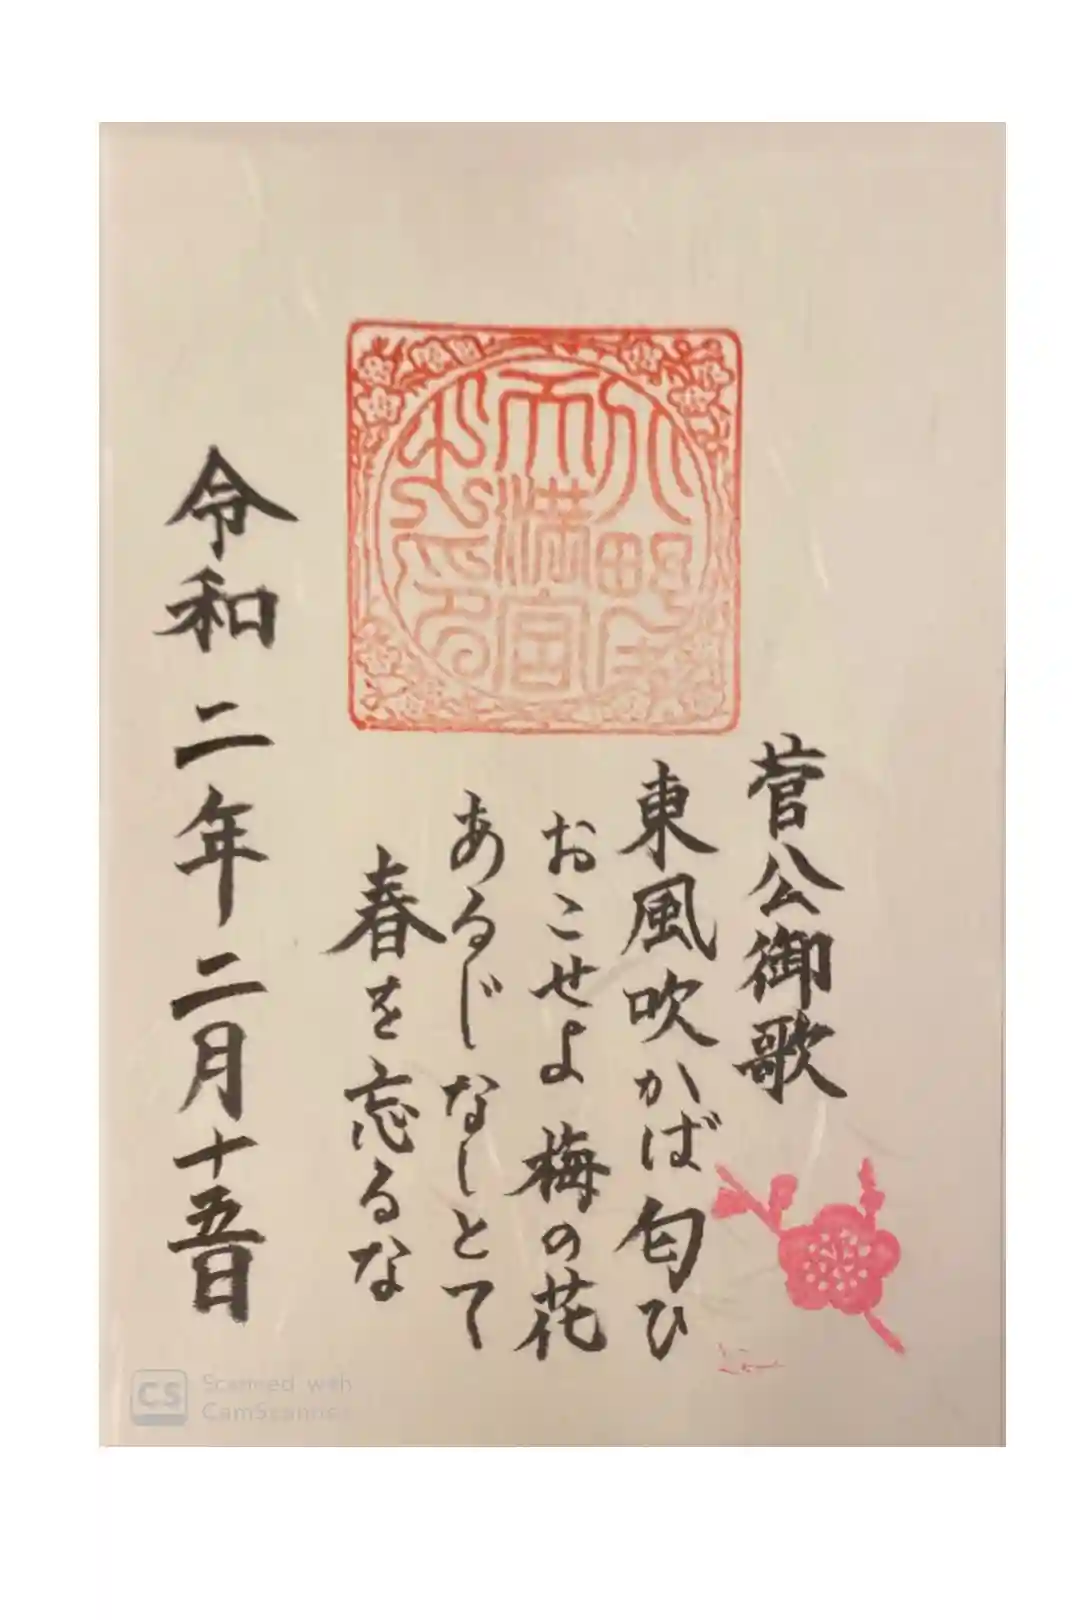 菅公御歌
東風吹かば匂ひ
おこせよ梅の花
あるじなしとて
春を忘るな
令和二年二月十五日
天満宮
CS
Scanned with
CamScanner